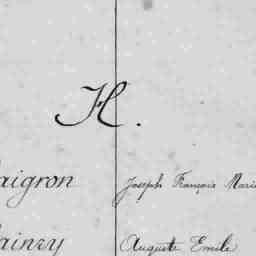 H.
aigron Joseph François Marie
ainey Auguste Emile